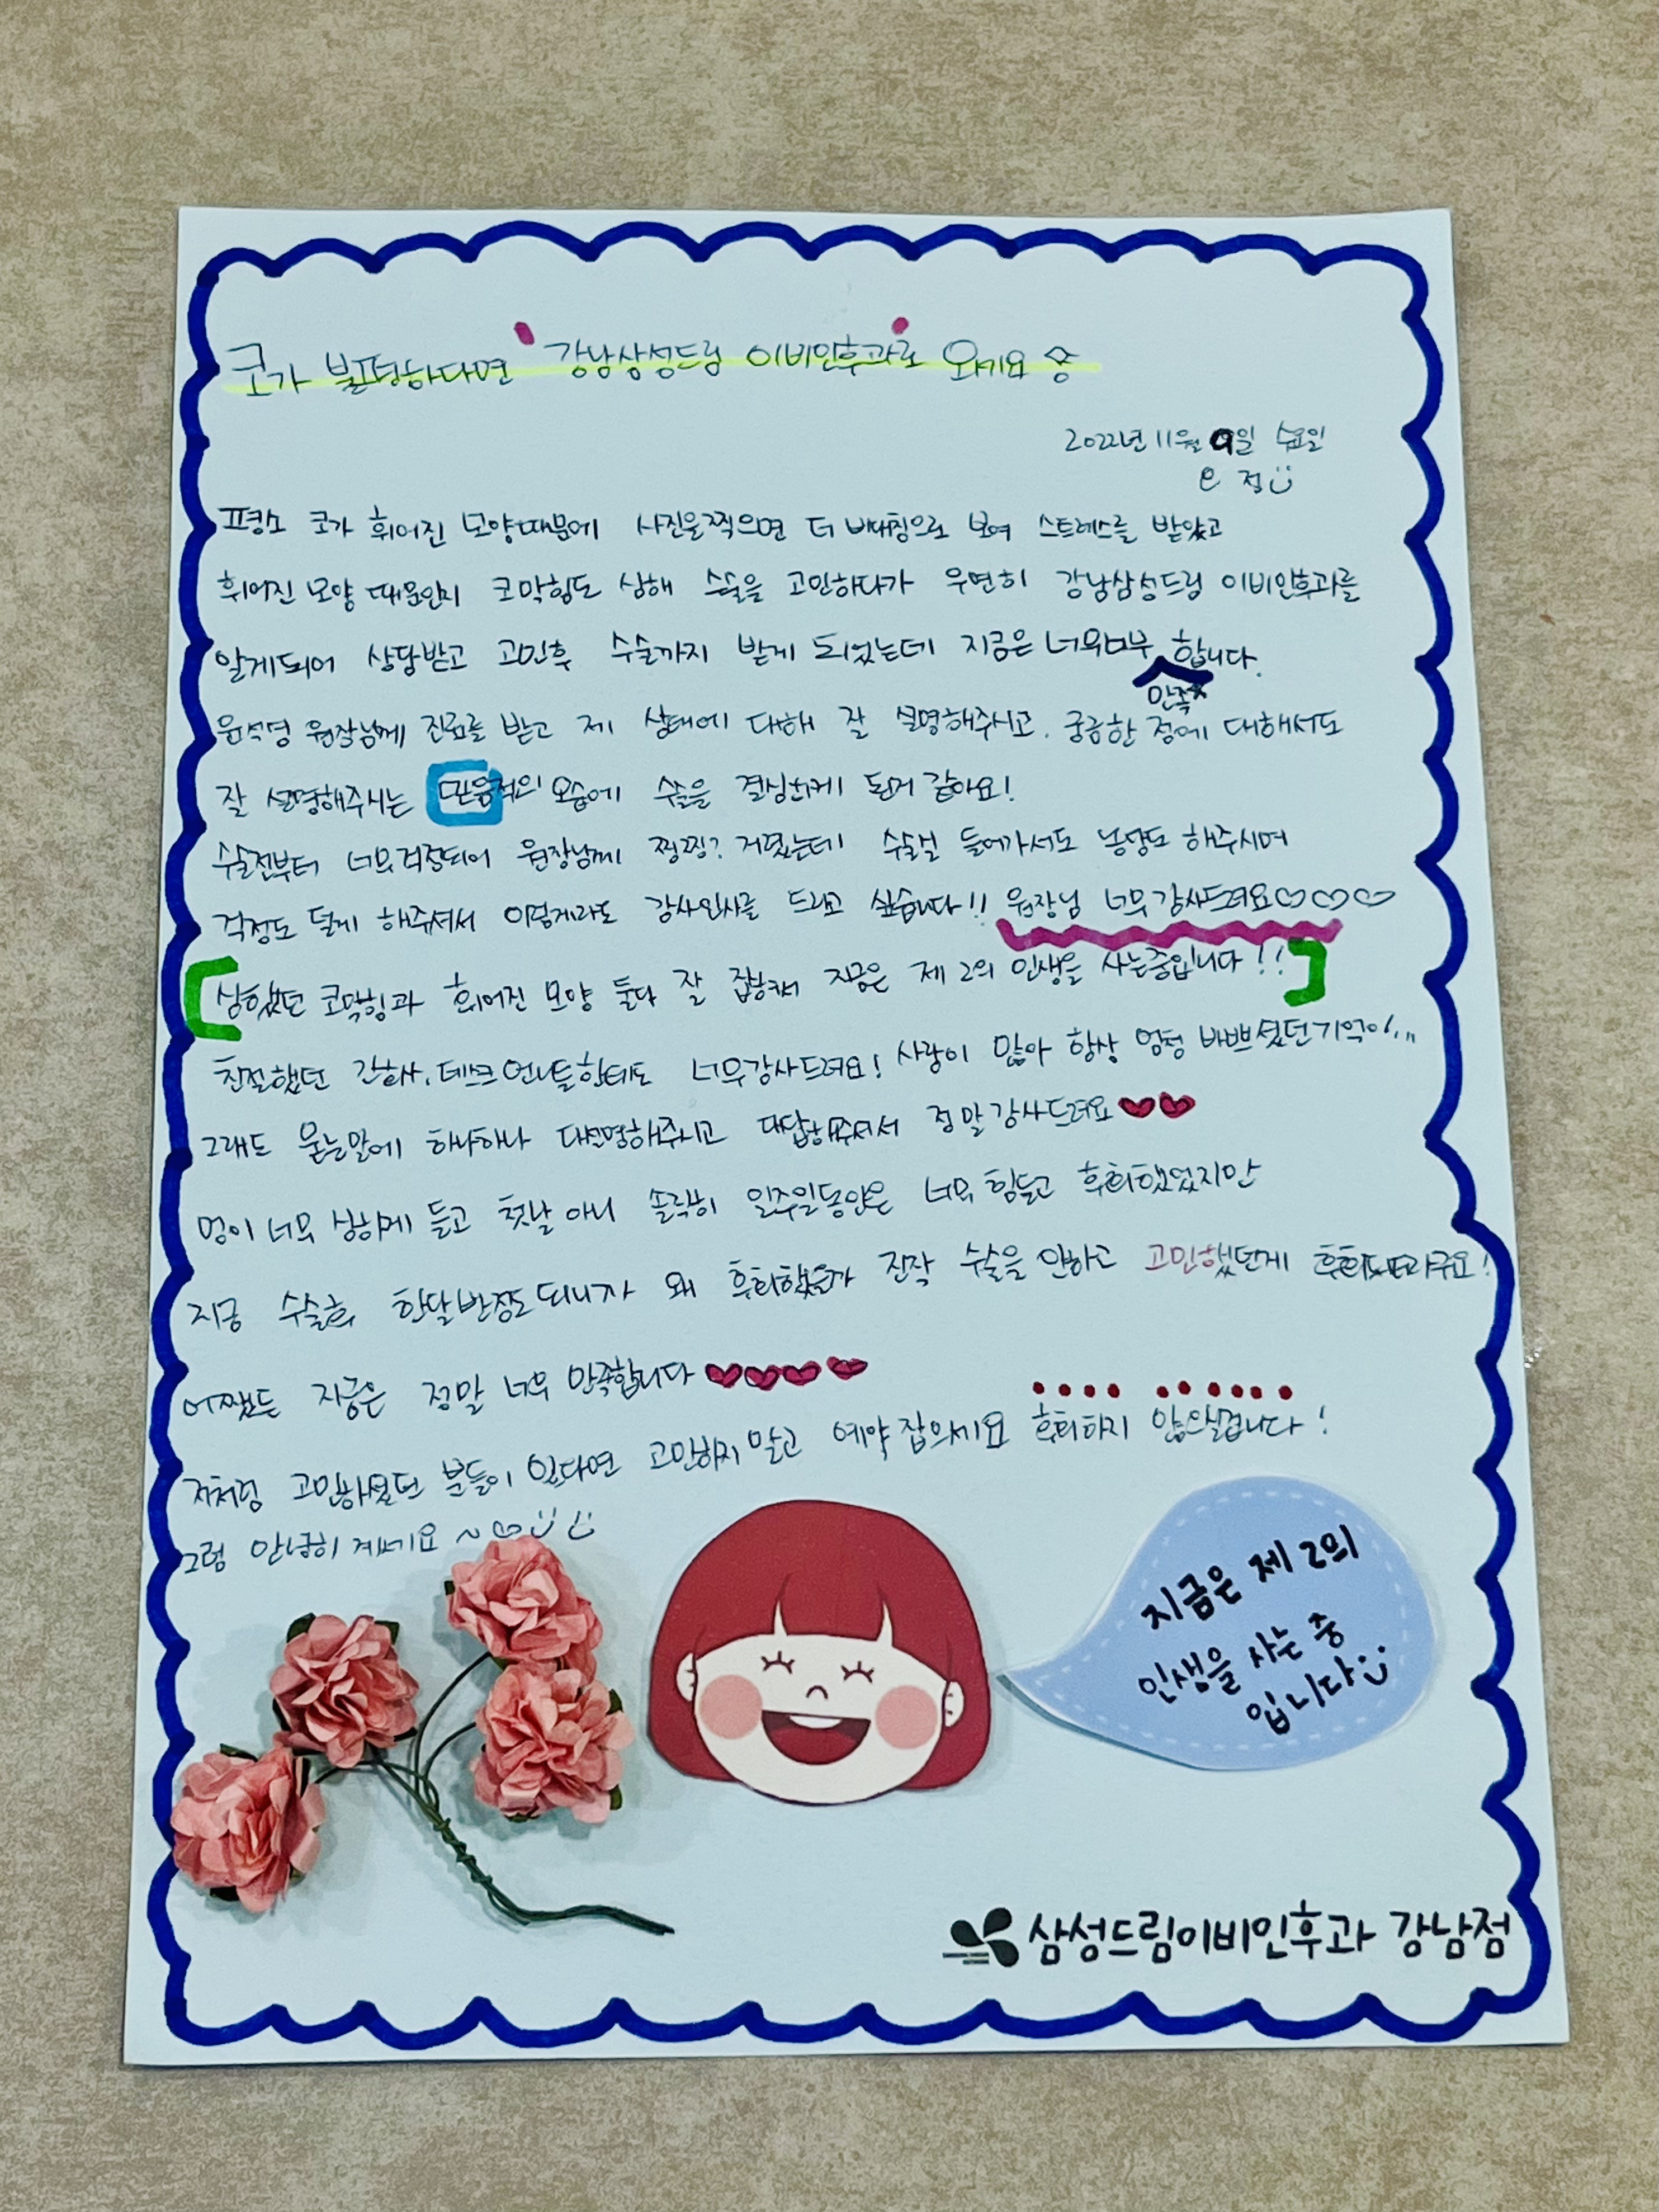 코가 불편하다면 강남삼성드림 이비인후과로 오세요
2022년 11월 9일 수요일
은 정
평소 코가 휘어진 모양때문에 사진을찍으면 더 비대칭으로 보여 스트레스를 받았고
휘어진 모양 때문인지 코막힘도 심해 수술을 고민하다가 우연히 강남삼성드림 이비인후과를
알게되어 상담받고 고민후 수술까지 받게 되었는데 지금은 너무너무 만족 합니다.
윤석영 원장님께 진료를 받고 제 상태에 대해 잘 설명해주시고. 궁금한 점에 대해서도
잘 설명해주시는 믿음적의 모습에 수술을 결심하게 된거 같아요!
수술전부터 너무걱정되어 원장님께 찡찡? 거렸는데 수술실 들어가서도 농담도 해주시며
걱정도 덜게 해주셔서 이렇게라도 감사인사를 드리고 싶습니다!! 원장님 너무감사드려요♡♡♡
심했던 코막힘과 휘어진 모양 둘다 잘 잡혀서 지금은 제 2의 인생을 사는중입니다!!
친절했던 간호사, 데스크 언니들한테도 너무감사드려요! 사람이 많아 항상 엄청 바쁘셨던기억이...
그래도 묻는말에 하나하나 다설명해주시고 대답해주셔서 정말감사드려요♥♥
멍이 너무 심하게 들고 첫날 아니 솔직히 일주일동안은 너무 힘들고 후회했었지만
지금 수술후 한달반정도 되니까 왜 후회했을까 진작 수술을 안하고 고민했던게 후회되더라구요!
어쨌든 지금은 정말 너무 만족합니다♥♥♥♥
저처럼 고민하셨던 분들이 있다면 고민하지말고 예약 잡으세요 후회하지 않으실겁니다!
그럼 안녕히 계세요 ~♡
지금은 제 2의
인생을 사는 중
입니다
삼성드림이비인후과 강남점